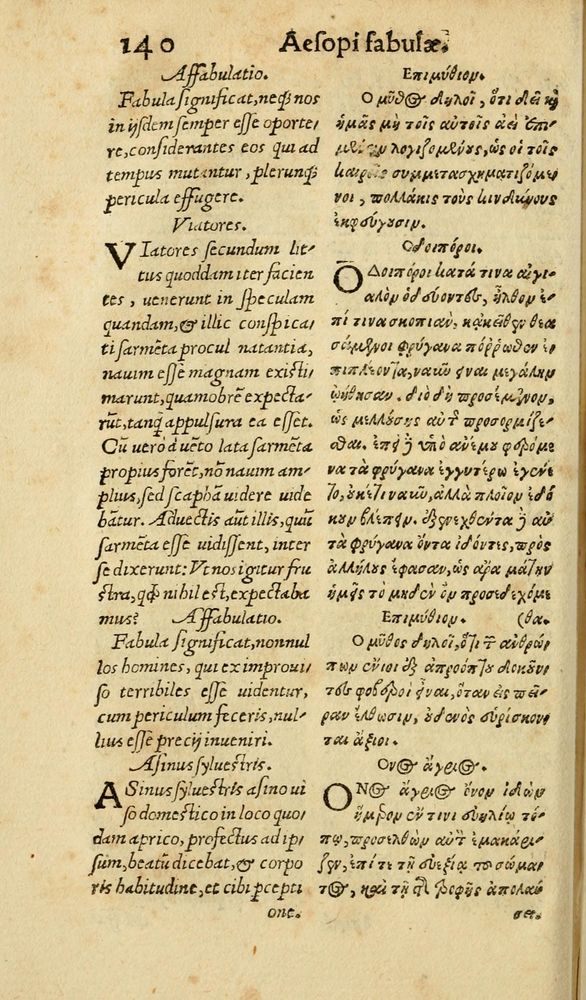 140 Aesopi fabulæ.
Affabulatio.
Fabula significat, neq; nos
in ijsdem semper esse oporte/
re, considerantes eos qui ad
tempus mutantur, plerunq;
pericula effugere.
Viatores.
VIatores secundum lit/
tus quoddam iter facien
tes, uenerunt in speculam
quandam, & illic conspica/
ti sarmẽta procul natantia,
nauim esse magnam existi
marunt, quamobrẽ expecta/
rũt, tanq̃ appulsura ea esset.
Cũ uero à uẽto lata sarmẽta
propius forẽt, nõ nauim am/
plius, sed scaphã uidere uide
bãtur. Aduectis aũt illis, quũ
sarmẽta esse uidissent, inter
se dixerunt: Vt nos igitur fru
stra, qđ nihil est, expectaba
mus? Affabulatio.
Fabula significat, nonnul
los homines, qui ex improui/
so terribiles esse uidentur,
cum periculum feceris, nul/
lius esse precij inueniri.
Asinus syluestris.
ASinus syluestris asino ui
so domestico in loco quo/
dam aprico, profectus ad ip/
sum, beatũ dicebat, & corpo
ris habitudine, et cibi pcepti
one.
Επιμύθιον.
Ο μῦθος δηλοῖ, ὅτι δεῖ καὶ
ἡμᾶς μὴ τοῖς αὐτοῖς ἀεὶ ἐπι
λογιζομένους, ὡς οἱ τοῖς
καιροῖς συμμετασχηματιζόμε
νοι, πολλάκις τοὺς κινδύνους
ἐκφεύγουσιν.
Οδοιπόροι.
ΟΔοιπόροι κατά τινα αἰγι
αλὸν ὁδεύοντες, ἦλθον ἐ
πί τινα σκοπιὰν, κἀκεῖθεν θεα
σάμενοι φρύγανα πόῤῥωθεν ἐ
πιπλέοντα, ναῦν εἶναι μεγάλην
ᾠήθησαν. διὸ δὴ προσέμενον,
ὡς μελλούσης αὐτῆς προσορμίζε
σθαι. ἐπεὶ δὲ ὑπὸ ἀνέμου φερόμε
να τὰ φρύγανα ἐγγυτέρω ἐγένε
το, οὐκέτι ναῦν, ἀλλὰ πλοῖον ἐδό
κουν βλέπειν. ἐξενεχθέντα δὲ αὐ
τὰ φρύγανα ὄντα ἰδόντες, πρὸς
ἀλλήλους ἔφασαν, ὡς ἄρα μάτην
ἡμεῖς τὸ μηδὲν ὂν προσεδεχόμε
Επιμύθιον. (θα.
Ο μῦθος δηλοῖ, ὅτι τῶν ἀνθρώ
πων ἔνιοι ἐξ ἀπροόπτου δοκοῦν
τες φοβεροὶ εἶναι, ὅταν εἰς πεῖ
ραν ἔλθωσιν, οὐδενὸς εὑρίσκον
ται ἄξιοι.
Ονος ἄγριος.
ΟΝος ἄγριος ὄνον ἰδὼν
ἥμερον ἔν τινι εὐηλίῳ τό
πῳ, προσελθὼν αὐτὸν ἐμακάρι
ζεν, ἐπί τε τῇ εὐεξίᾳ τοῦ σώμα
τος, καὶ τῇ τῆς τροφῆς ἀπολαύ
σει.